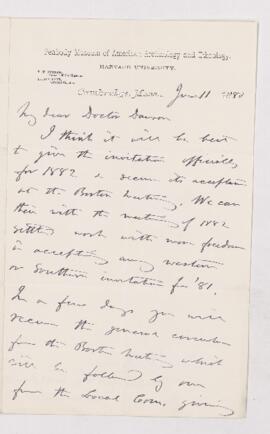 Peabody Museum of American Archaeology and Ethnology,
HARVARD UNIVERSITY.
Cambridge, Mass. June 11 1880
My dear Doctor Dawson
I think it will be best
to give the invitation officially
for 1882 & secure its acceptance
at the Boston Meeting. We can
then with the meeting of 1882
settled work with more freedom
in accepting any western
or Southern invitation for '81.
In a few days you will
receive the general circular
for the Boston Meeting which
will be followed by one
from the Local Com. giving